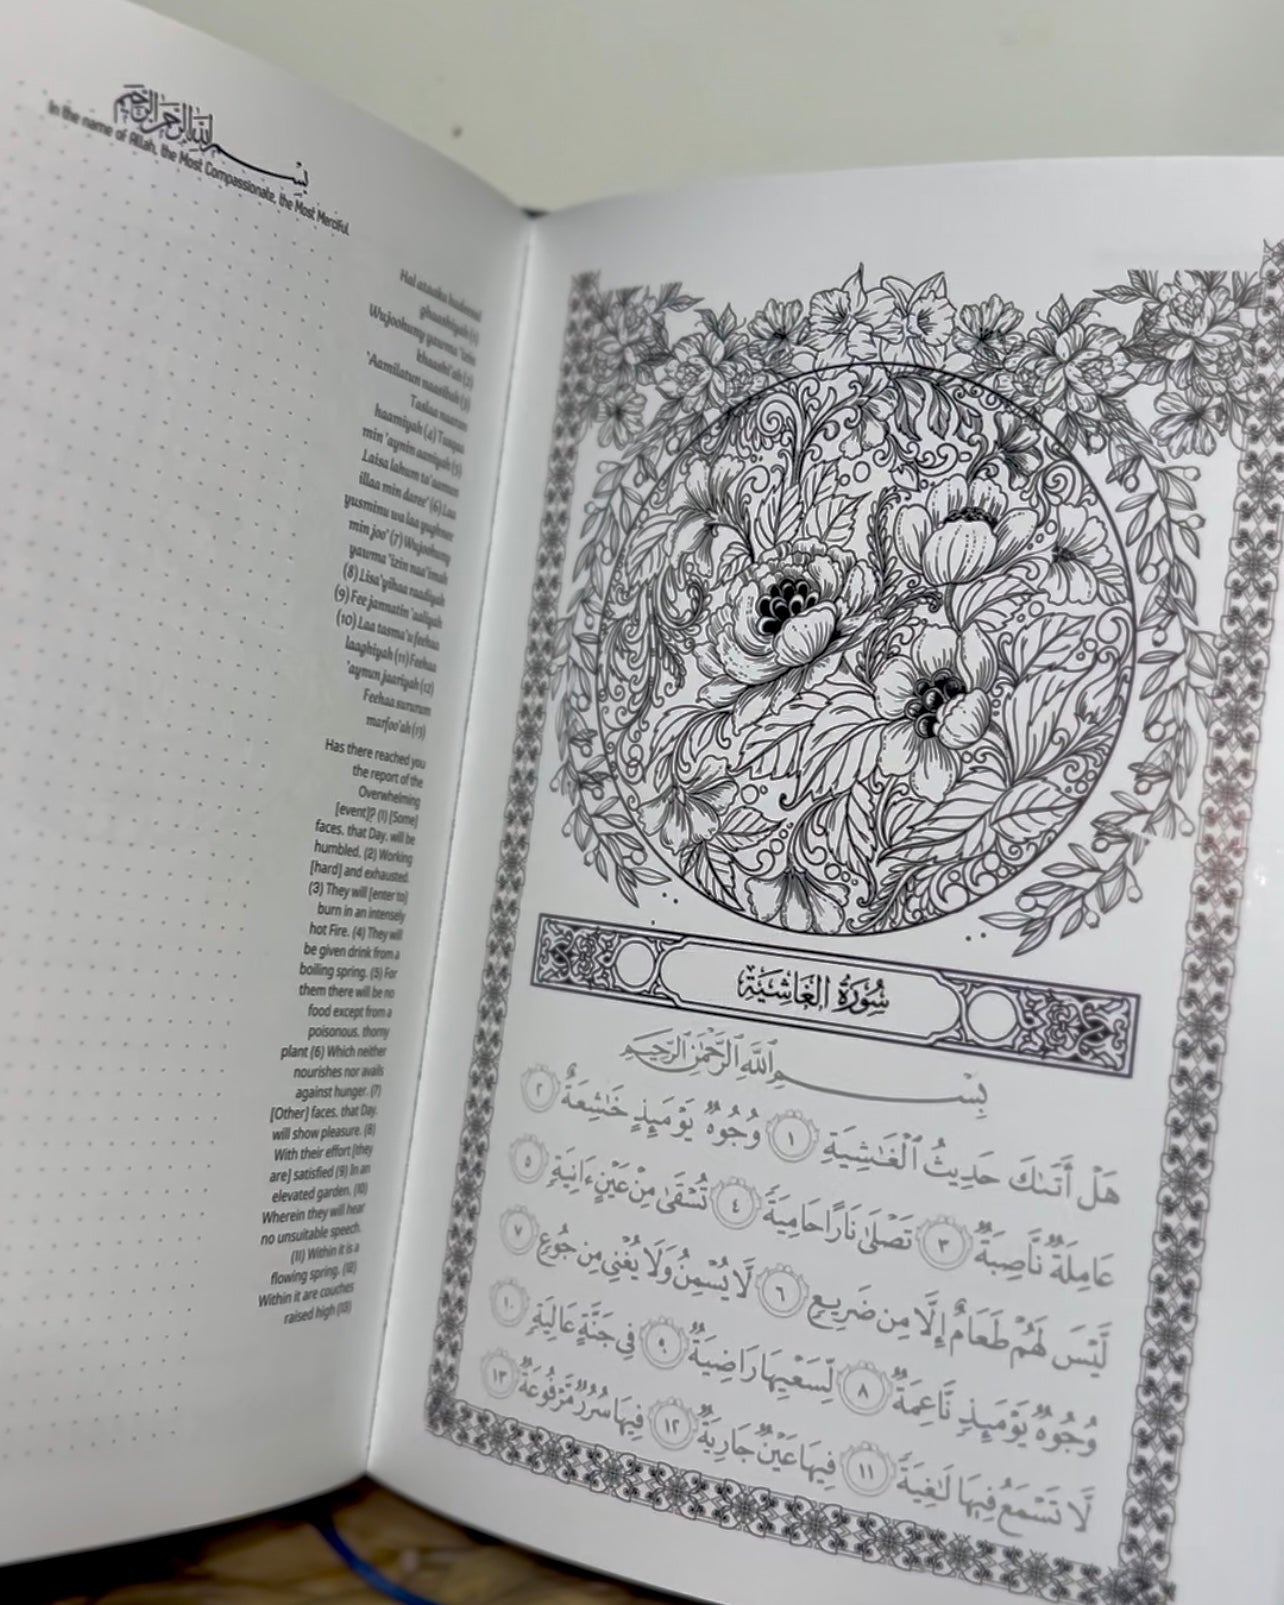 بِسْمِ اللَّهِ الرَّحْمَٰنِ الرَّحِيمِ
In the name of Allah, the Most Compassionate, the Most Merciful.
Hal ataaka hadeesul
ghaashiyah (1)
Wujoohuny yawma 'izin
khaashi'ah (2)
'Aamilatun naasibah (3)
Taslaa naaran
haamiyah (4) Tusqaa
min 'aynin aaniyah (5)
Laisa lahum ta'aamun
illaa min daree' (6) Laa
yusminu wa laa yughnee
min joo' (7) Wujoohuny
yawma 'izin naa'imah
(8) Lisa'yihaa raadiyah
(9) Fee jannatin 'aaliyah
(10) Laa tasma'u feehaa
laaghiyah (11) Feehaa
'aynun jaariyah (12)
Feehaa sururum
marfoo'ah (13)
Has there reached you
the report of the
Overwhelming
[event]? (1) [Some]
faces, that Day, will be
humbled, (2) Working
[hard] and exhausted.
(3) They will [enter to]
burn in an intensely
hot Fire. (4) They will
be given drink from a
boiling spring. (5) For
them there will be no
food except from a
poisonous, thorny
plant (6) Which neither
nourishes nor avails
against hunger. (7)
[Other] faces, that Day,
will show pleasure. (8)
With their effort [they
are] satisfied (9) In an
elevated garden, (10)
Wherein they will hear
no unsuitable speech.
(11) Within it is a
flowing spring. (12)
Within it are couches
raised high (13)
سُورَةُ الْغَاشِيَةِ
بِسْمِ ٱللَّهِ ٱلرَّحْمَٰنِ ٱلرَّحِيمِ
هَلْ أَتَىٰكَ حَدِيثُ ٱلْغَٰشِيَةِ ١ وُجُوهٌ يَوْمَئِذٍ خَٰشِعَةٌ ٢
عَامِلَةٌ نَّاصِبَةٌ ٣ تَصْلَىٰ نَارًا حَامِيَةً ٤ تُسْقَىٰ مِنْ عَيْنٍ ءَانِيَةٍ ٥
لَّيْسَ لَهُمْ طَعَامٌ إِلَّا مِن ضَرِيعٍ ٦ لَّا يُسْمِنُ وَلَا يُغْنِى مِن جُوعٍ ٧
وُجُوهٌ يَوْمَئِذٍ نَّاعِمَةٌ ٨ لِّسَعْيِهَا رَاضِيَةٌ ٩ فِى جَنَّةٍ عَالِيَةٍ ١٠
لَّا تَسْمَعُ فِيهَا لَٰغِيَةً ١١ فِيهَا عَيْنٌ جَارِيَةٌ ١٢ فِيهَا سُرُرٌ مَّرْفُوعَةٌ ١٣